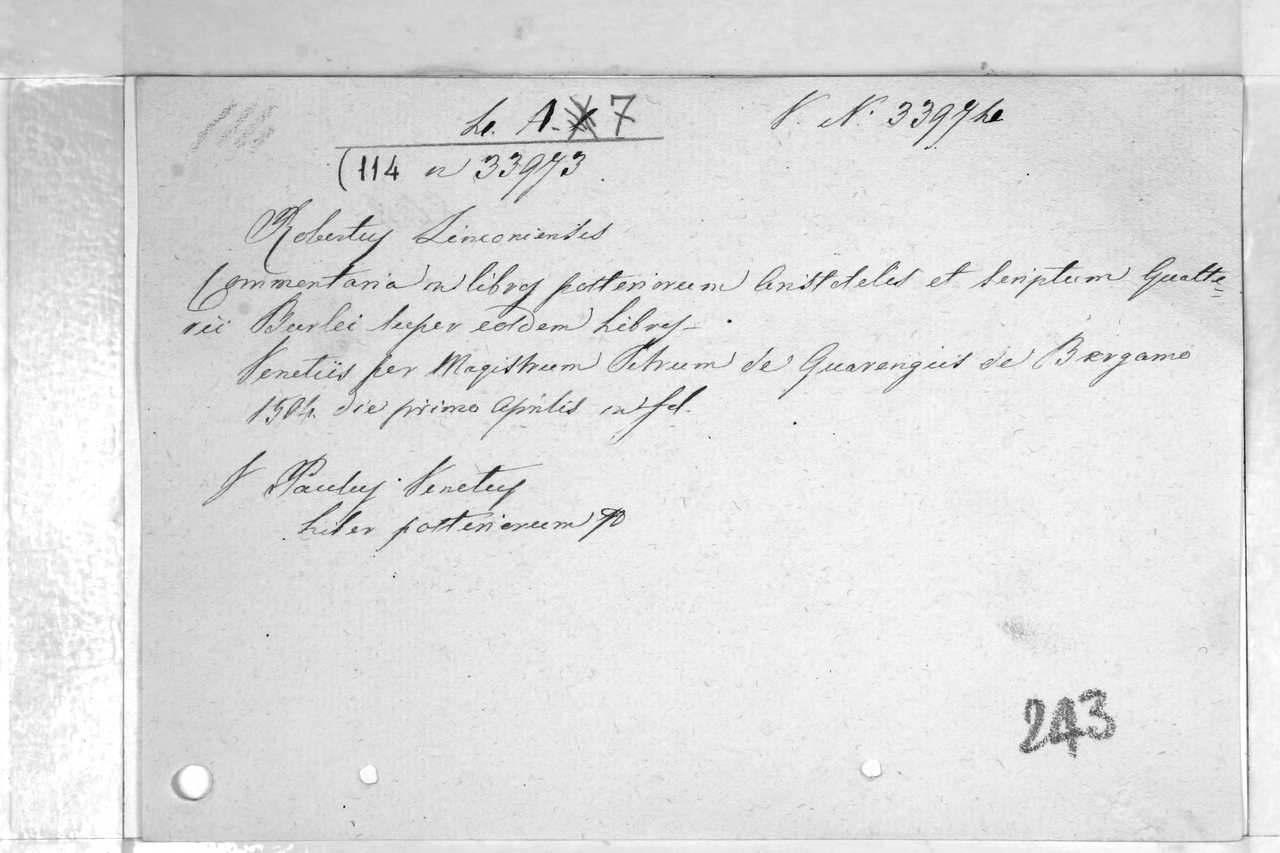 Li. A. 7
V. N. 33974
(114 n 33973
Robertus Linconiensis
Commentaria in libros posteriorum Aristotelis et scriptum Gualte=
rii Burlei super eosdem Libros.
Venetiis per Magistrum Petrum de Quarengiis de Bergamo
1504. die primo Aprilis in fol.
V Paulus Venetus
Liber posteriorum
243